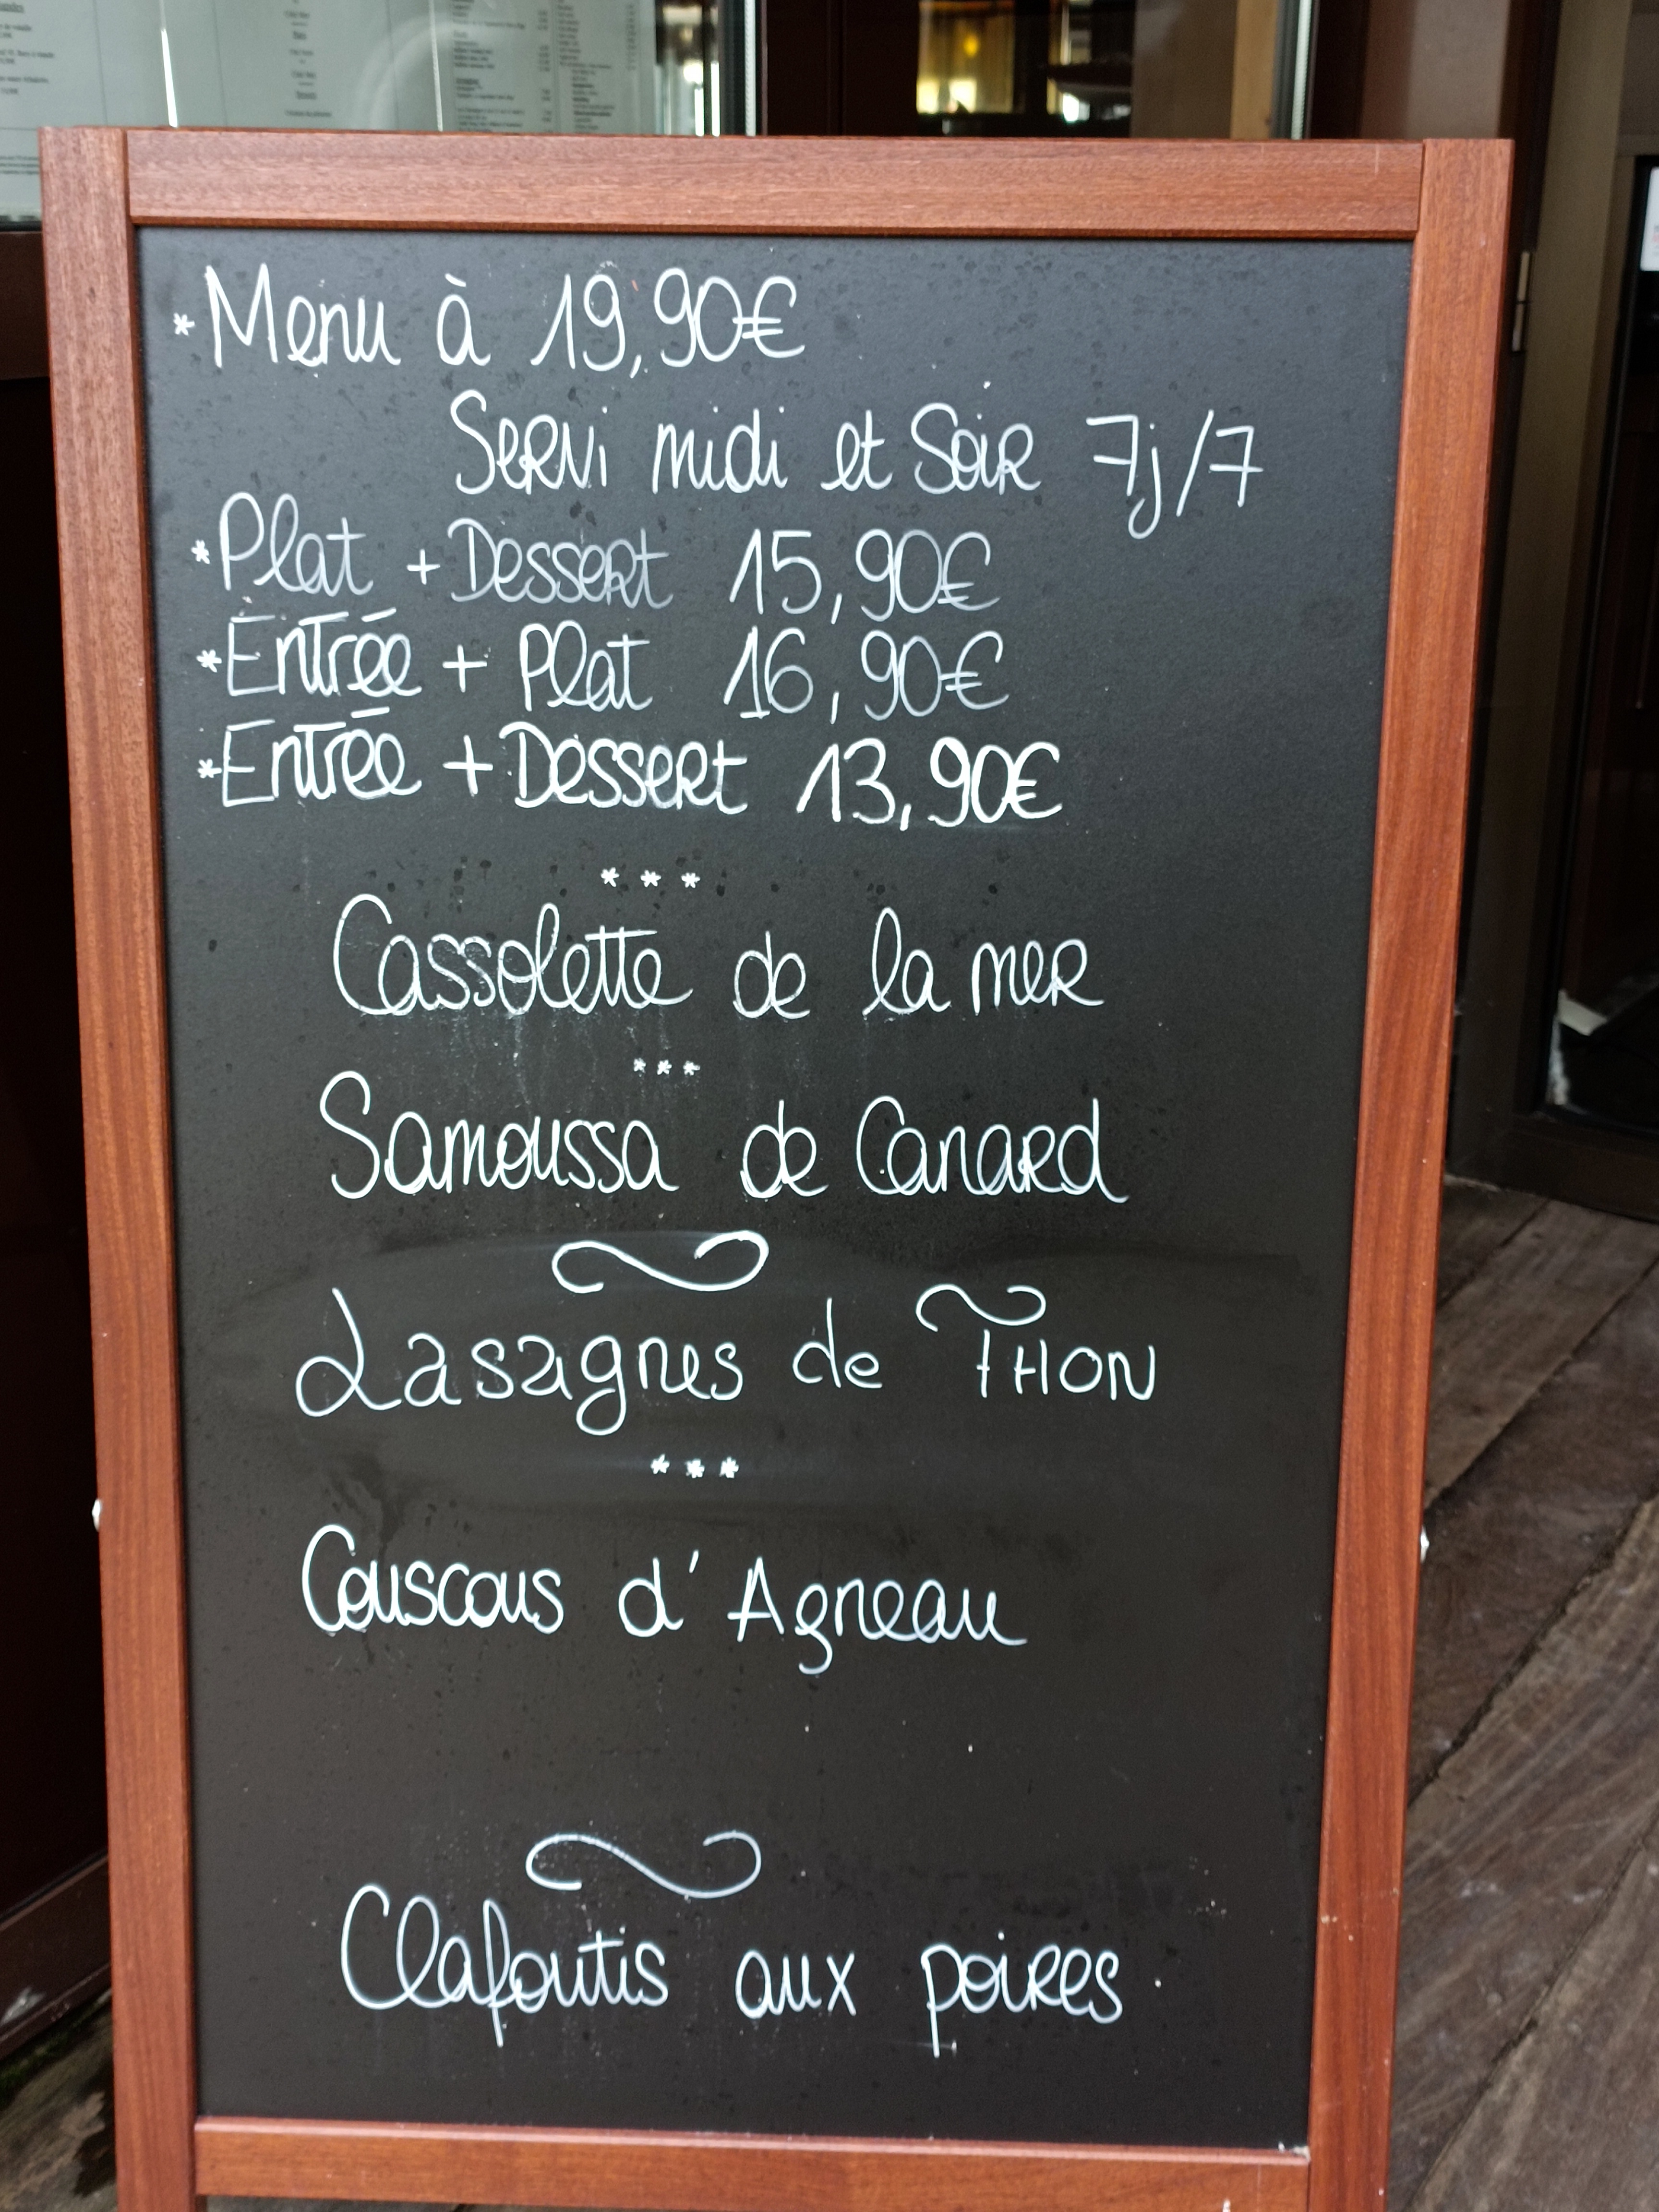 *Menu à 19,90€
Servi midi et Soir 7j/7
*Plat + Dessert 15,90€
*Entrée + Plat 16,90€
*Entrée + Dessert 13,90€
* * *
Cassolette de la mer
* * *
Samoussa de Canard
Lasagnes de THON
* * *
Couscous d'Agneau
Clafoutis aux poires.